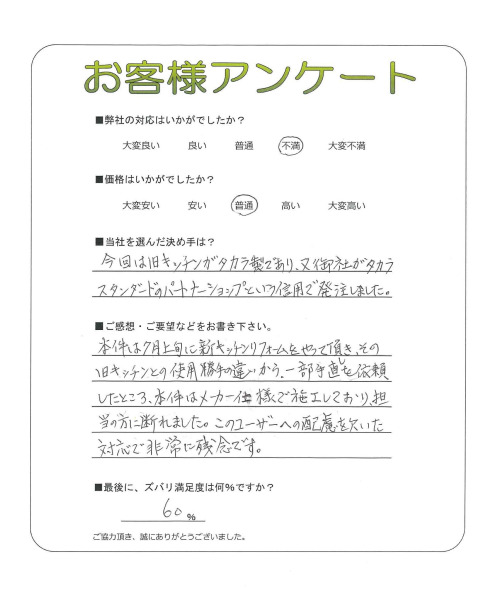 お客様アンケート
■弊社の対応はいかがでしたか？
大変良い 良い 普通 不満 大変不満
■価格はいかがでしたか？
大変安い 安い 普通 高い 大変高い
■当社を選んだ決め手は？
今回は旧キッチンがタカラ製であり、又御社がタカラ
スタンダードのパートナーショップという信用で発注しました。
■ご感想・ご要望などをお書き下さい。
本件は7月上旬に新キッチンリフォームをやって頂き、その
旧キッチンとの使用勝手の違いから、一部手直しを依頼
したところ、本件はメーカー仕様で施工しており、担
当の方に断れました。このユーザーへの配慮を欠いた
対応で非常に残念です。
■最後に、ズバリ満足度は何％ですか？
60 ％
ご協力頂き、誠にありがとうございました。